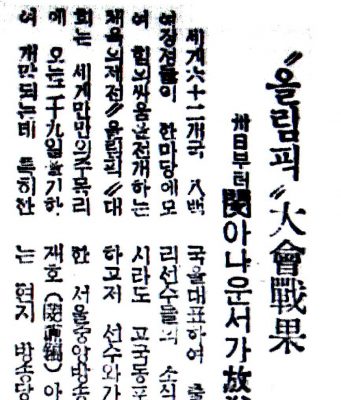 《올림픽》大會戰果
卅日부터 閔아나운서가 放
세게六十二개국 八백
여장정들이 한마당에모
여 힘의싸움을전개하는
채육의제전《올림픽》대
회는 세게만민의주목리
에 오는二十九일을기하
여 개막되는데 특히찬
국을대표하여 출
리선수들의 소식
시라도 고국동포
하고저 선수와가
한 서울중앙방송
재호(閔載鎬)아
는 현지 방송당